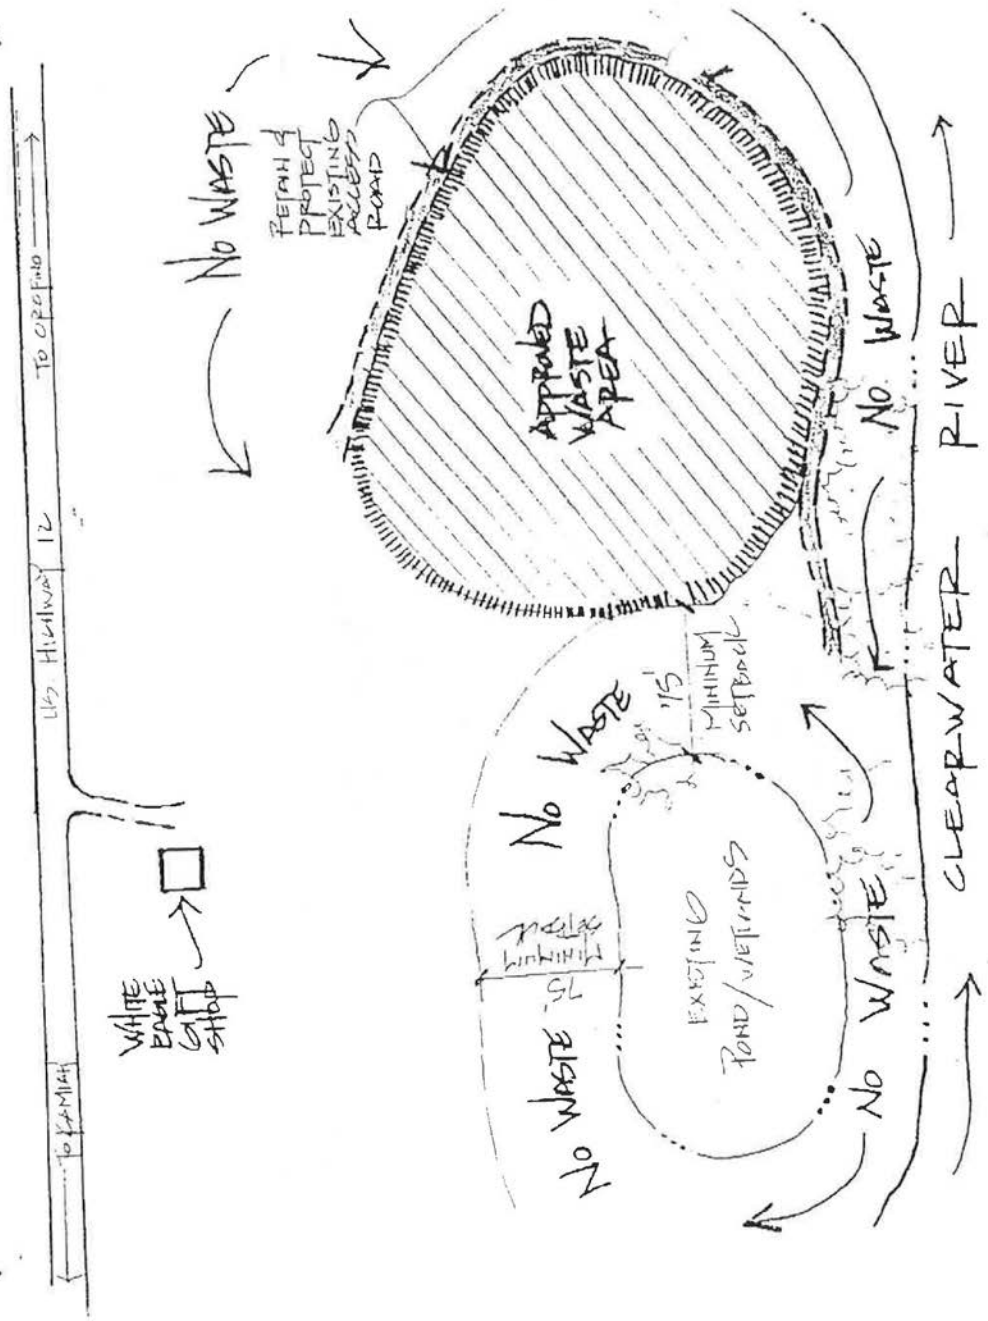 ← TO KAMIAH
U.S. HIGHWAY 12
TO OROFINO →
WHITE
EAGLE
GIFT
SHOP
NO WASTE
RETAIN &
PROTECT
EXISTING
ACCESS
ROAD
APPROVED
WASTE
AREA
NO WASTE
75'
MINIMUM
SETBACK
NO WASTE
75'
MINIMUM
SETBACK
EXISTING
POND/WETLANDS
NO WASTE
NO WASTE
CLEARWATER RIVER